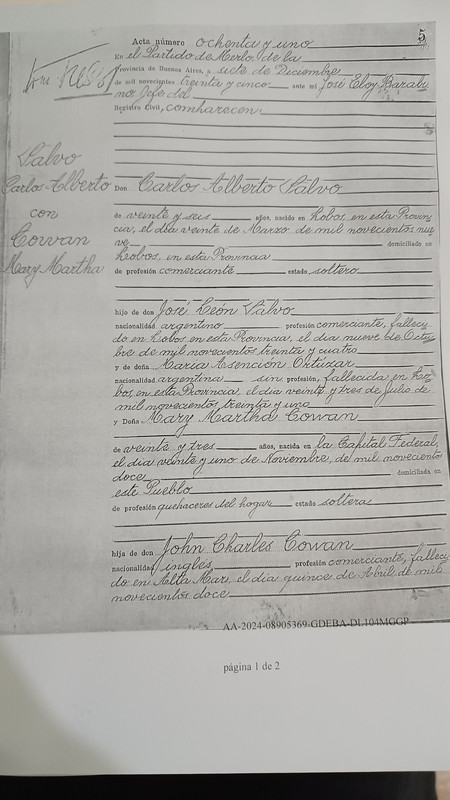 Acta número ochenta y uno
5
En el Partido de Merlo, de la
Provincia de Buenos Aires, a siete de Diciembre
de mil novecientos treinta y cinco ante mí José Eloy
Jefe del
Registro Civil, comparecen:
Salvo
Carlos Alberto
con
Cowan
Mary Martha
Don Carlos Alberto Salvo
de veinte y seis años, nacido en Lobos, en esta Provin
cia, el día veinte de Marzo de mil novecientos nue
ve domiciliado en
Lobos, en esta Provincia
de profesión comerciante estado soltero
hijo de don José León Salvo
nacionalidad argentino profesión comerciante, falleci
do en Lobos en esta Provincia, el día nueve de Octu
bre de mil novecientos treinta y cuatro
y de doña María Asención Ortúzar
nacionalidad argentina sin profesión, fallecida en Lo
bos, en esta Provincia, el día veinte y tres de Julio de
mil novecientos treinta y uno
y Doña Mary Martha Cowan
de veinte y tres años, nacida en la Capital Federal,
el día veinte y uno de Noviembre, de mil novecientos
doce domiciliada en
este Pueblo
de profesión quehaceres del hogar estado soltera
hija de don John Charles Cowan
nacionalidad inglés profesión comerciante, falleci
do en Alta Mar, el día quince de Abril de mil
novecientos doce
AA-2024-08905369-GDEBA-DL104MGGP
página 1 de 2